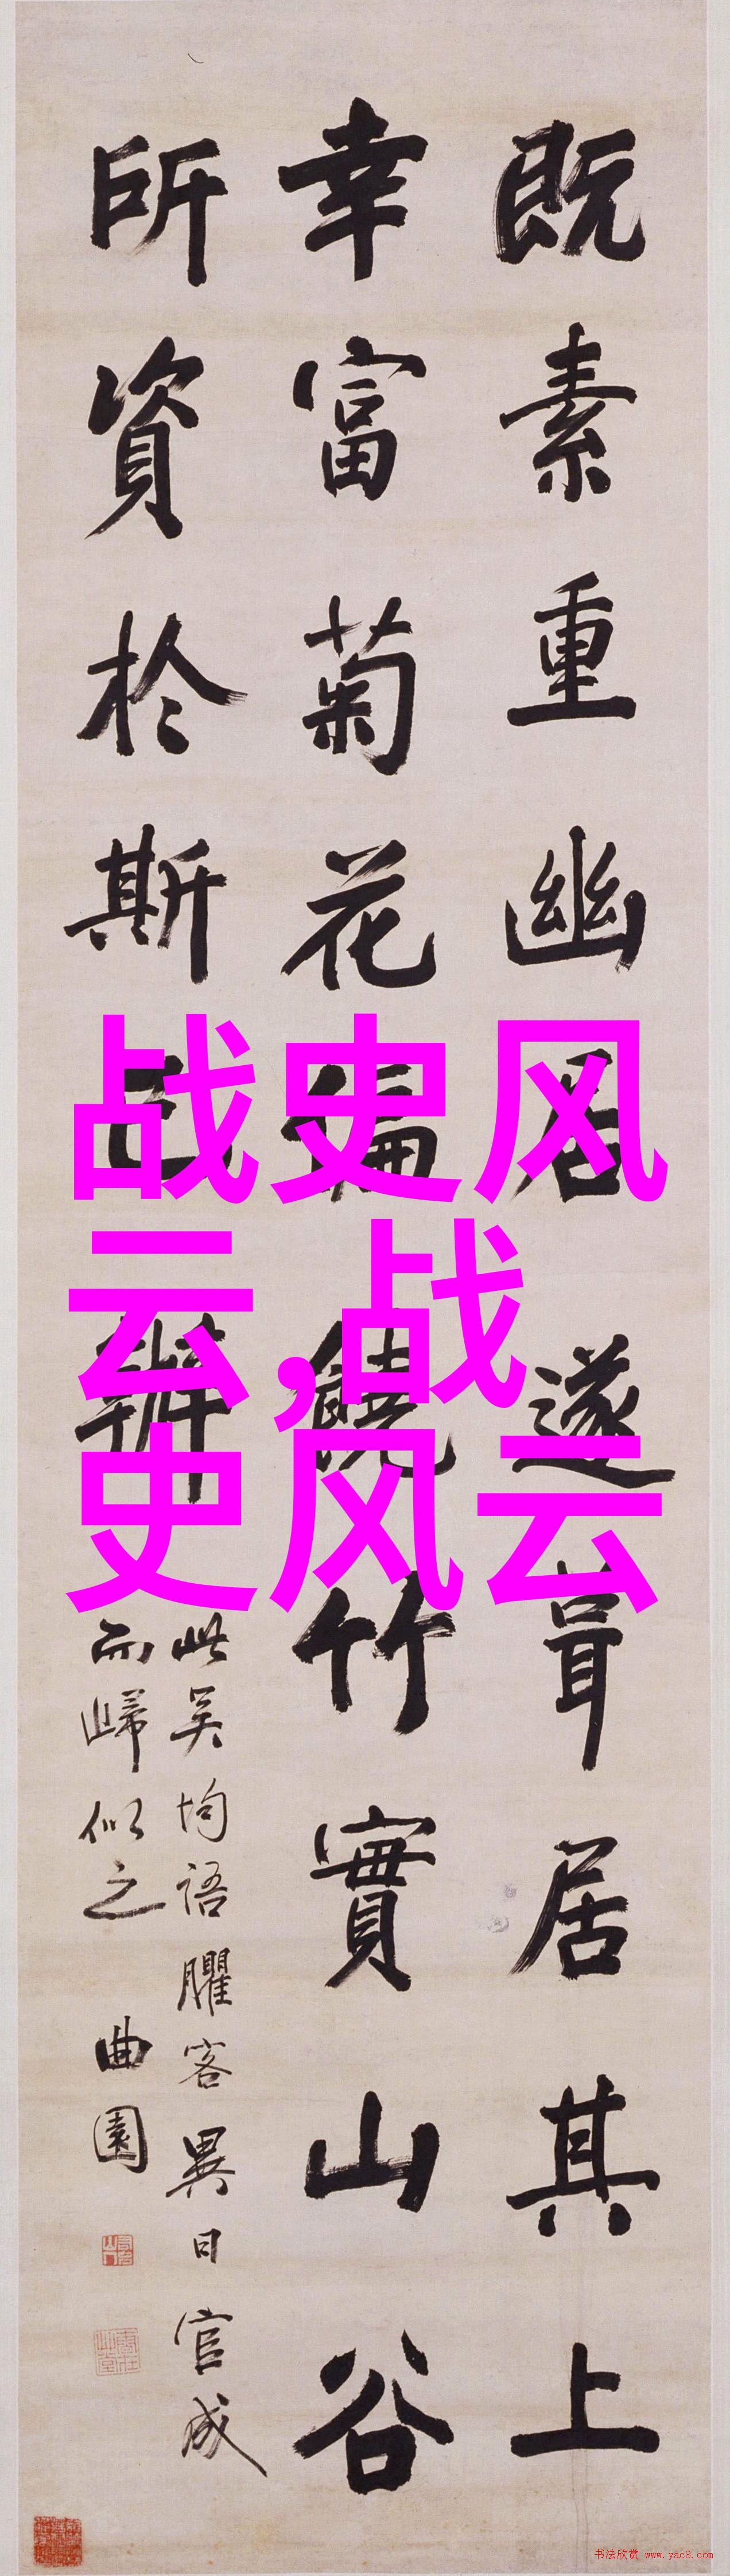 既素重幽居遂葺居其上
幸富菊花偏饒竹實山谷
所資於斯已辦
此吴均語臞客異日官成
而歸似之 曲園
战史风
云,战
史风云
书法欣赏 www.yac8.com